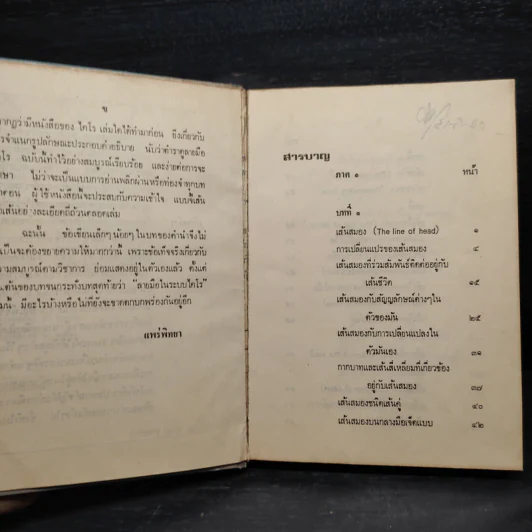 ข
ากฏว่ามีหนังสือของ ไคโร เล่มใดได้ทำมาก่อน ยิ่งเกี่ยวกับ
รจำแนกรูปลักษณะประกอบคำอธิบาย นับว่าตำราดูลายมือ
โร ฉบับนี้ทำไว้อย่างสมบูรณ์เรียบร้อย และง่ายต่อการจะ
ษา ไม่ว่าจะเป็นแบบการอ่านหลักผ่านหรือท่องจำทุกบท
ตอน ผู้ใช้หนังสือนี้จะประสบกับความเข้าใจ แบบจี้เส้น
เส้นอย่างละเอียดถี่ถ้วนตลอดเล่ม
ฉะนั้น ข้อเขียนเล็กๆ น้อยๆ ในบทของคำนำจึงไม่
เป็นจะต้องขยายความให้มากกว่านี้ เพราะข้อเท็จจริงเกี่ยวกับ
วามสมบูรณ์ตามวิชาการ ย่อมแสดงอยู่ในตัวเองแล้ว ตั้งแต่
เ้นต้นของบทจนกระทั่งบทสุดท้ายว่า "ลายมือในระบบไคโร"
มนี้ มีอะไรบ้างหรือไม่ที่ยังจะขาดตกบกพร่องกันอยู่อีก
แพร่พิทยา
สารบาญ
ภาค ๑ หน้า
บทที่ ๑
เส้นสมอง (The line of head) ๑
การเปลี่ยนแปรของเส้นสมอง ๔
เส้นสมองที่ร่วมสัมพันธ์ติดต่ออยู่กับ
เส้นชีวิต ๑๕
เส้นสมองกับสัญญลักษณ์ต่างๆใน
ตัวของมัน ๒๕
เส้นสมองกับการเปลี่ยนแปลงใน
ตัวมันเอง ๓๑
กากบาทและเส้นสี่เหลี่ยมที่เกี่ยวข้อง
อยู่กับเส้นสมอง ๓๗
เส้นสมองชนิดเส้นคู่ ๔๐
เส้นสมองบนกลางมือเจ็ดแบบ ๔๒